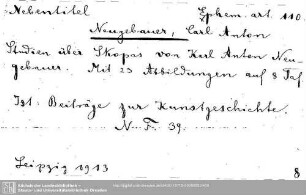 Nebentitel Ephem. art. 110.
Neugebauer, Carl Anton
Studien über Skopas von Karl Anton Neu-
gebauer. Mit 23 Abbildungen auf 8 Taf
Ist: Beiträge zur Kunstgeschichte.
N. F. 39.
Leipzig 1913 8